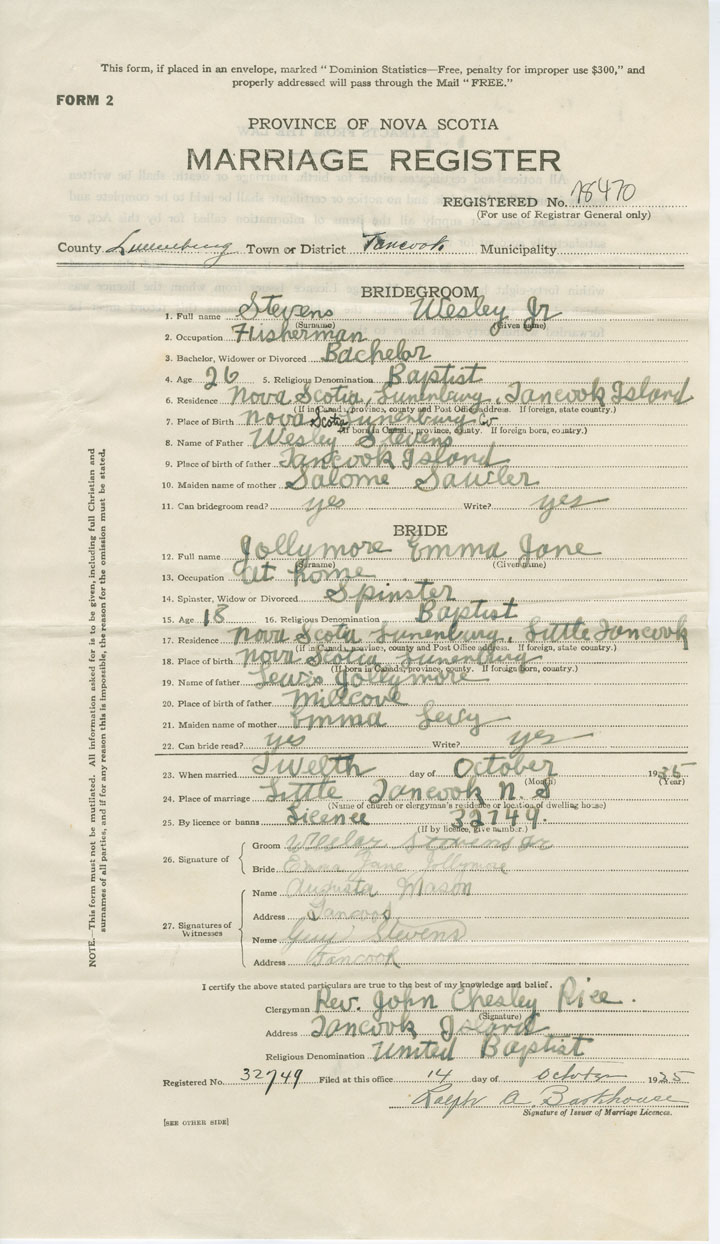 This form, if placed in an envelope, marked "Dominion Statistics—Free, penalty for improper use $300," and
properly addressed will pass through the Mail "FREE."
FORM 2
PROVINCE OF NOVA SCOTIA
MARRIAGE REGISTER
REGISTERED No. 78470
(For use of Registrar General only)
County Lunenburg Town or District Tancook Municipality
BRIDEGROOM
1. Full name Stevens Wesley Jr
(Surname) (Given name)
2. Occupation Fisherman
3. Bachelor, Widower or Divorced Bachelor
4. Age 26 5. Religious Denomination Baptist
6. Residence Nova Scotia, Lunenburg, Tancook Island
(If in Canada, province, county and Post Office address. If foreign, state country.)
7. Place of Birth Nova Scotia Lunenburg Co
(If born in Canada, province, county. If foreign born, country.)
8. Name of Father Wesley Stevens
9. Place of birth of father Tancook Island
10. Maiden name of mother Salome Saucler
11. Can bridegroom read? yes Write? yes
BRIDE
12. Full name Jollymore Emma Jane
(Surname) (Given name)
13. Occupation at home
14. Spinster, Widow or Divorced Spinster
15. Age 18 16. Religious Denomination Baptist
17. Residence Nova Scotia Lunenburg, Little Tancook
(If in Canada, province, county and Post Office address. If foreign, state country.)
18. Place of birth Nova Scotia Lunenburg
(If born in Canada, province, county. If foreign born, country.)
19. Name of father Lewis Jollymore
20. Place of birth of father Millcove
21. Maiden name of mother Emma Levy
22. Can bride read? yes Write? yes
23. When married Twelth day of October 1935
(Month) (Year)
24. Place of marriage Little Tancook N. S
(Name of church or clergyman's residence or location of dwelling house)
25. By licence or banns Licence 32749.
(If by licence, give number.)
26. Signature of
Groom Wesley Stevens Jr
Bride Emma Jane Jollymore
27. Signatures of Witnesses
Name Augusta Mason
Address Tancook
Name Guy Stevens
Address Tancook
I certify the above stated particulars are true to the best of my knowledge and belief.
Clergyman Rev. John Chesley Rice.
(Signature)
Address Tancook Island
Religious Denomination United Baptist
Registered No. 32749 Filed at this office 14 day of October 1935
Ralph A. Barkhouse
Signature of Issuer of Marriage Licences.
[SEE OTHER SIDE]
NOTE.—This form must not be mutilated. All information asked for is to be given, including full Christian and
surnames of all parties, and if for any reason this is impossible, the reason for the omission must be stated.